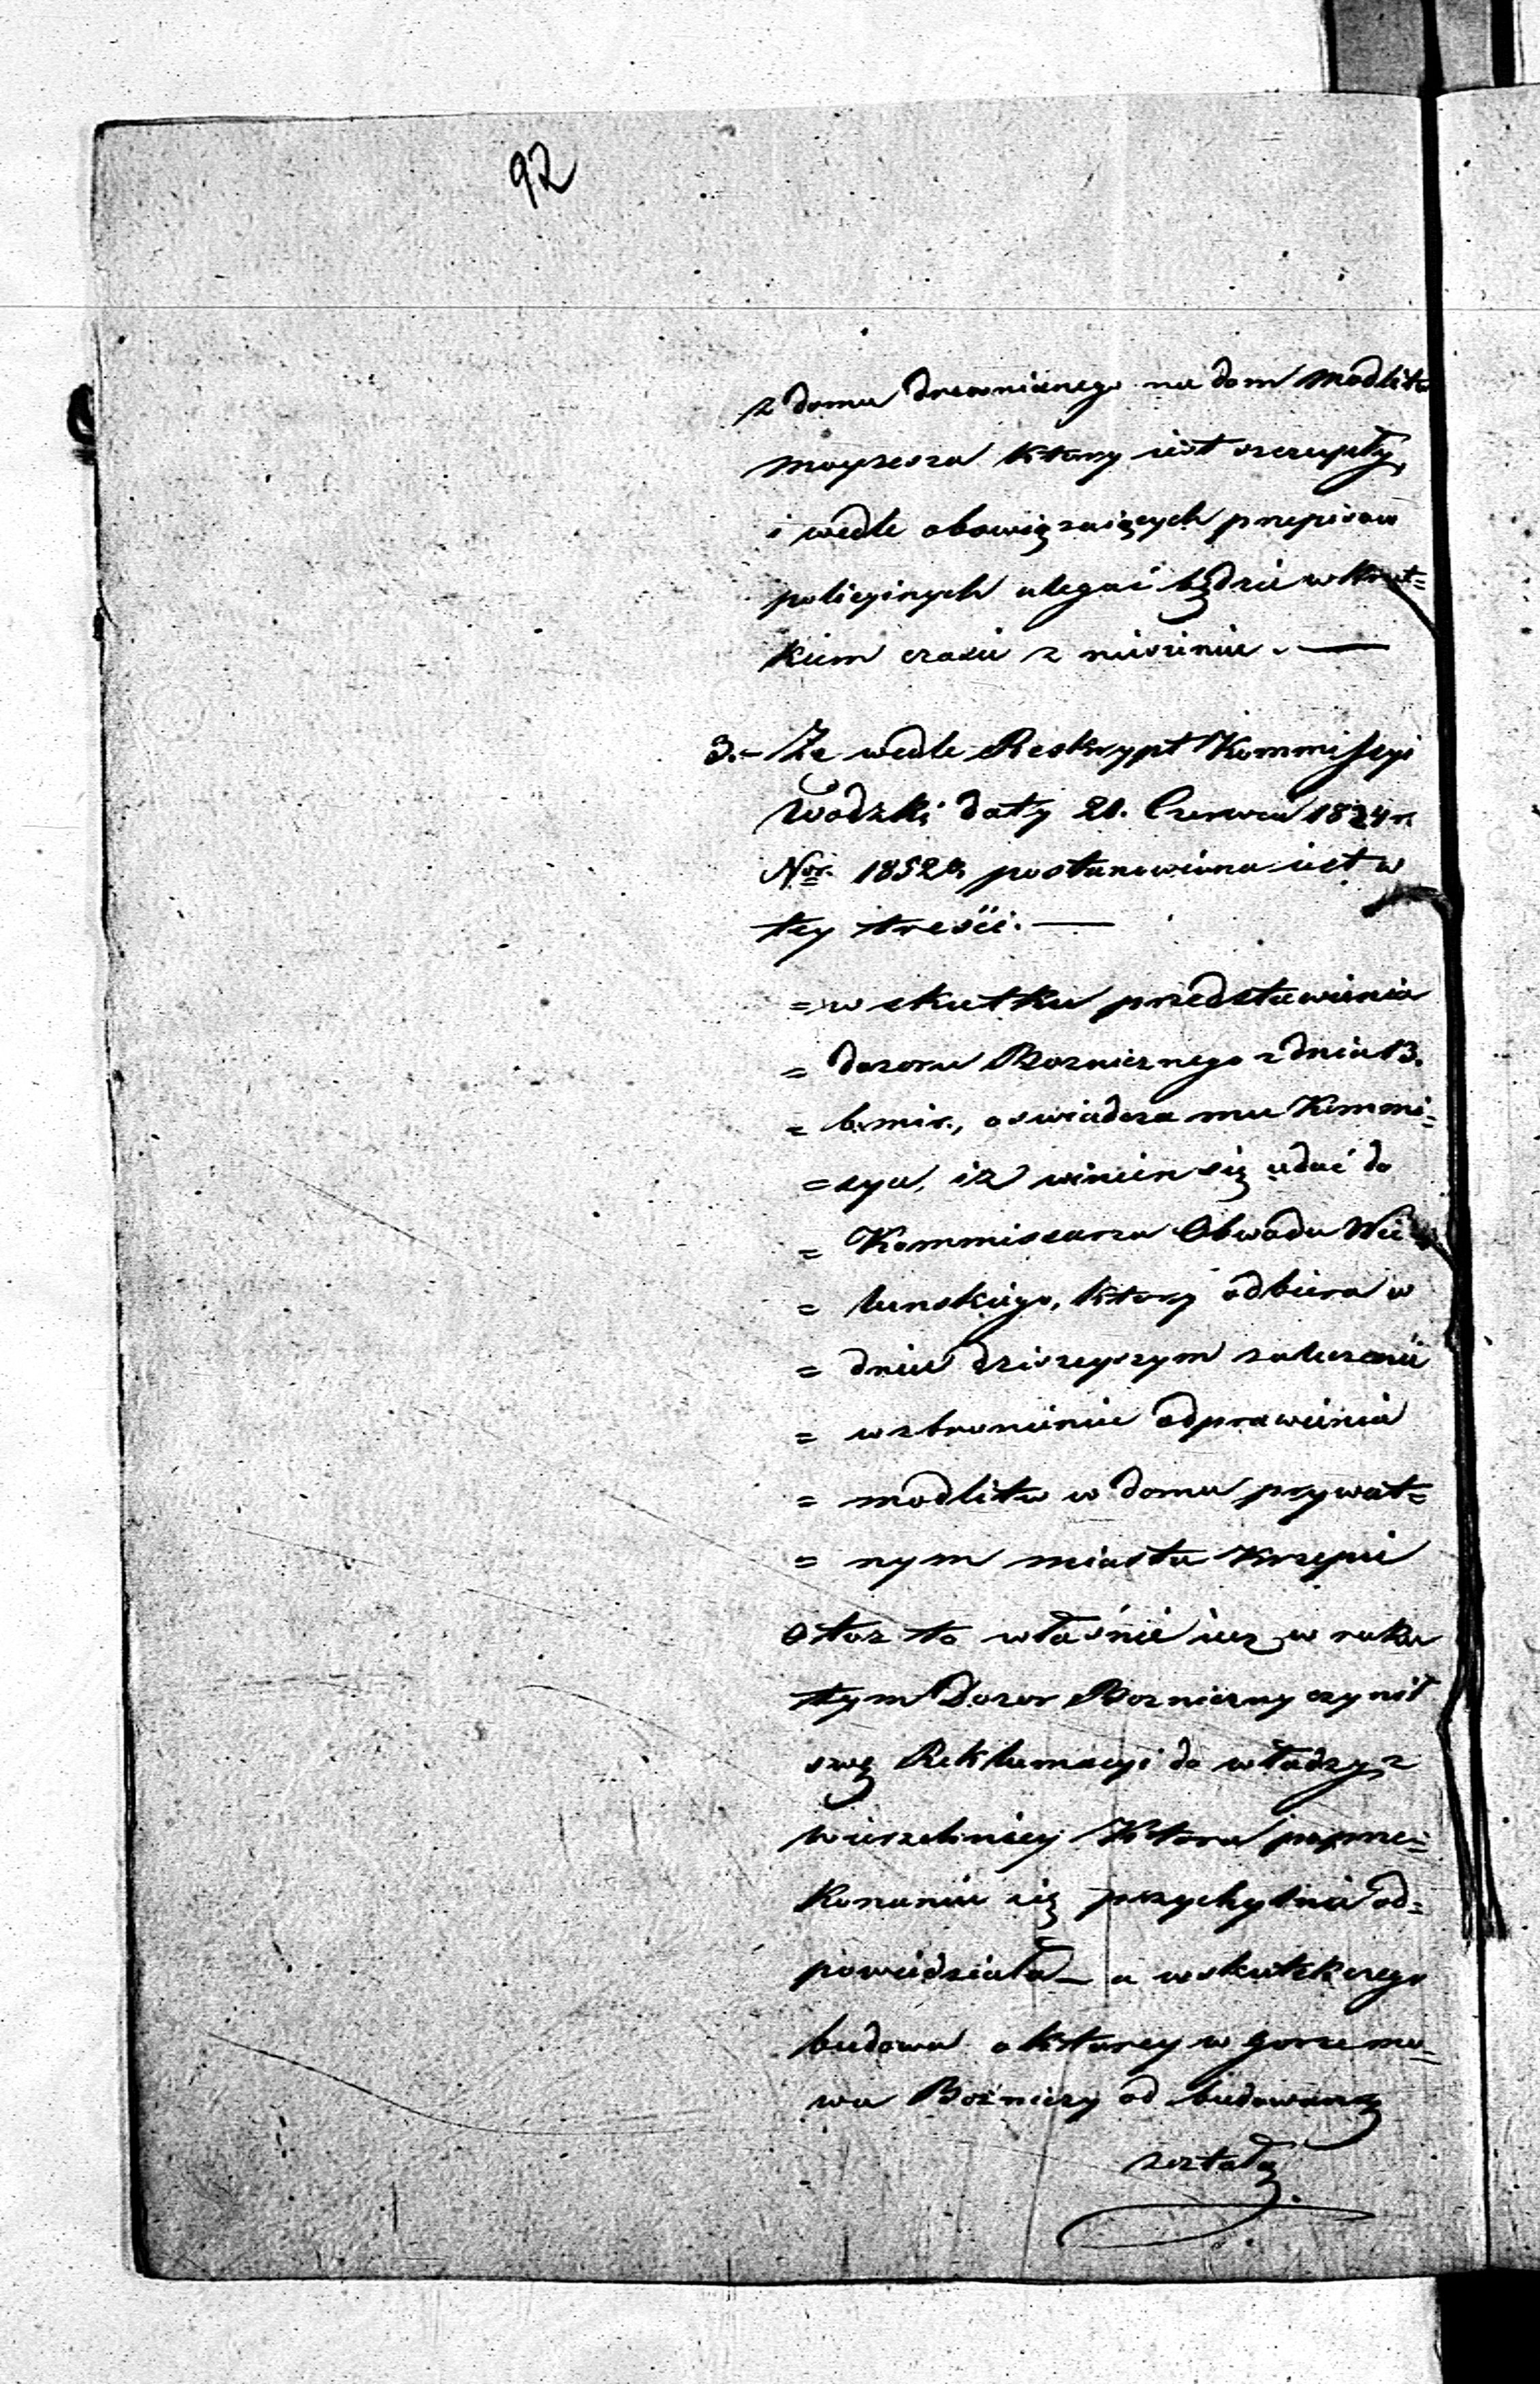 92
z domu drewnianego na dom modlitw
Moyzesza ktory iest szczupły,
i wedle obowięzuiących przepisow
policyinych ulegać będzie w krot=
kim czasie zniesieniu. —
3.- Że wedle Reskrypt Kommissyi
Wodzki daty 21. Czerwca 1824 r.
Nor. postanowiono iest w
tey treści. —
= w skutku przedstawienia
= dozoru Bozniczego z dnia 13.
= b. mir., oswiadcza mu Kommi=
= sya, iż winien się udać do
= Kommissarza Obwodu Wie
= lunskiego, ktory odbiera w
= dniu dzisieyszym zalecenie
= wzbronienia odprawienia
= modlitw w domu prywat=
= nym miasta Krzepic
Otoz to właśnie iuz w roku
tym Dozor Bozniczny czynił
swę Reklamacyi do władzy z
wierzchniey ktora poprze=
konaniu się przychylnie od=
powiedziała — a wskutek czego
budowa o ktorey w gorze mo=
wa Bożnicy od budowaną
została.